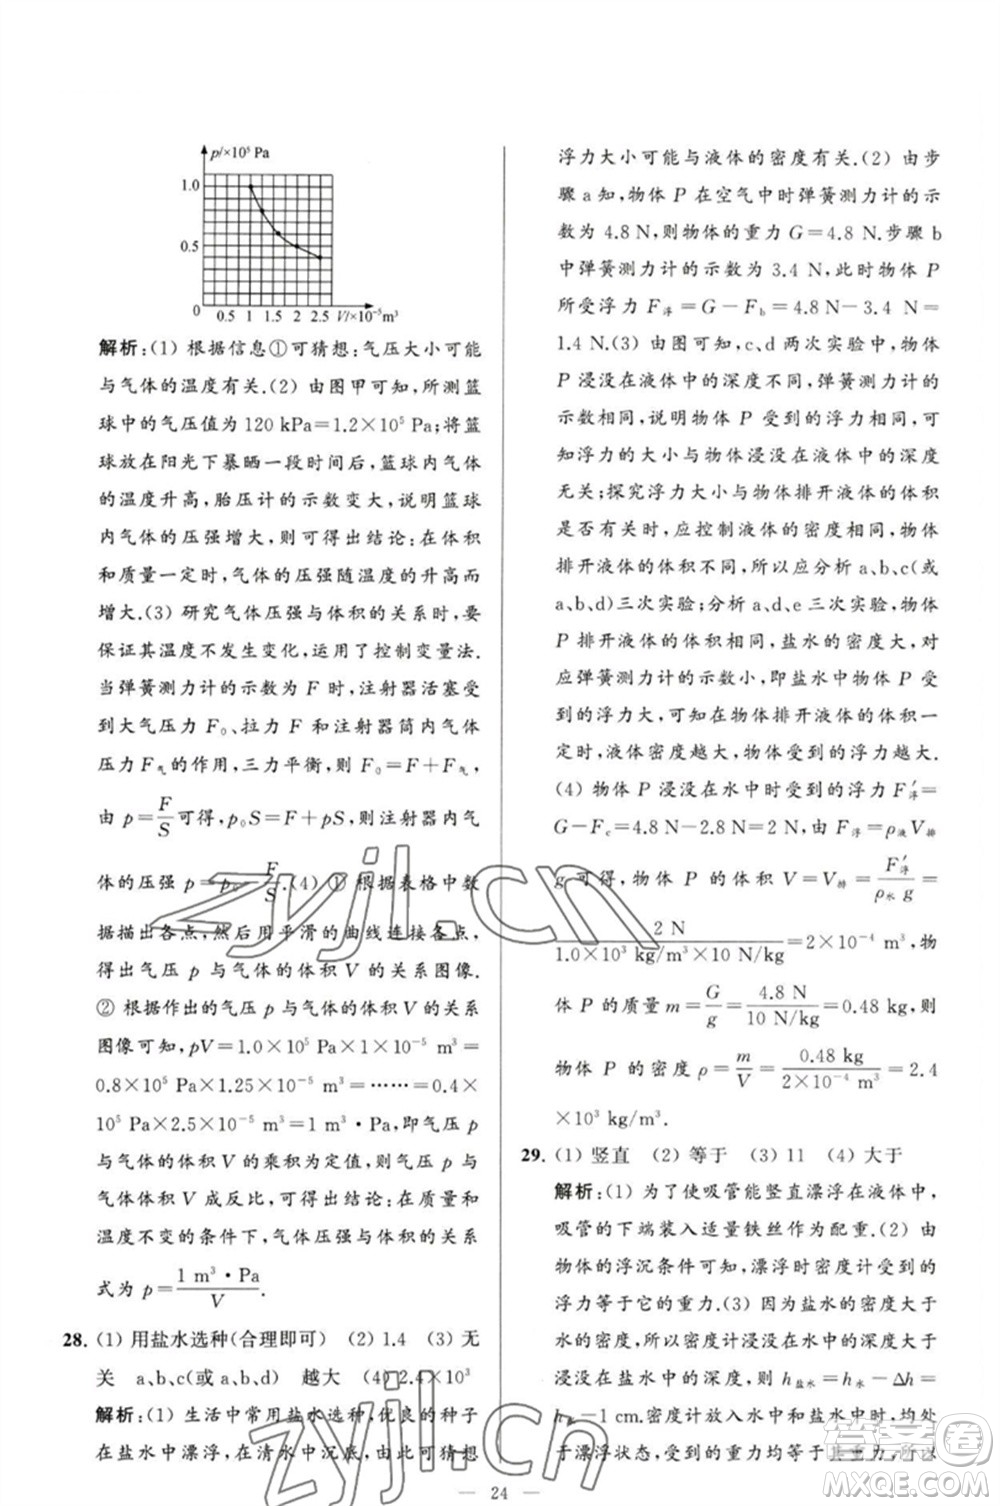 p/×10⁵ Pa
1.0
0.5
0
0.5 1 1.5 2 2.5 V/×10⁻⁵m³
解析:(1) 根据信息①可猜想:气压大小可能
与气体的温度有关.(2) 由图甲可知,所测篮
球中的气压值为 120 kPa=1.2×10⁵ Pa;将篮
球放在阳光下暴晒一段时间后,篮球内气体
的温度升高,胎压计的示数变大,说明篮球
内气体的压强增大,则可得出结论:在体积
和质量一定时,气体的压强随温度的升高而
增大.(3) 研究气体压强与体积的关系时,要
保证其温度不发生变化,运用了控制变量法.
当弹簧测力计的示数为 F 时,注射器活塞受
到大气压力 F₀、拉力 F 和注射器筒内气体
压力 F气 的作用,三力平衡,则 F₀=F+F气,
由 p=F/S 可得,p₀S=F+pS,则注射器内气
体的压强 p=p₀-F/S.(4) ① 根据表格中数
据描出各点,然后用平滑的曲线连接各点,
得出气压 p 与气体的体积 V 的关系图像.
② 根据作出的气压 p 与气体的体积 V 的关系
图像可知,pV=1.0×10⁵ Pa×1×10⁻⁵ m³=
0.8×10⁵ Pa×1.25×10⁻⁵ m³=……=0.4×
10⁵ Pa×2.5×10⁻⁵ m³=1 m³·Pa,即气压 p
与气体的体积 V 的乘积为定值,则气压 p 与
气体体积 V 成反比,可得出结论:在质量和
温度不变的条件下,气体压强与体积的关系
式为 p=1 m³·Pa/V.
28. (1) 用盐水选种(合理即可) (2) 1.4 (3) 无
关 a、b、c(或 a、b、d) 越大 (4) 2.4×10³
解析:(1) 生活中常用盐水选种,优良的种子
在盐水中漂浮,在清水中沉底,由此可猜想
浮力大小可能与液体的密度有关.(2) 由步
骤 a 知,物体 P 在空气中时弹簧测力计的示
数为 4.8 N,则物体的重力 G=4.8 N.步骤 b
中弹簧测力计的示数为 3.4 N,此时物体 P
所受浮力 F浮=G-Fb=4.8 N-3.4 N=
1.4 N.(3) 由图可知,c、d 两次实验中,物体
P 浸没在液体中的深度不同,弹簧测力计的
示数相同,说明物体 P 受到的浮力相同,可
知浮力的大小与物体浸没在液体中的深度
无关;探究浮力大小与物体排开液体的体积
是否有关时,应控制液体的密度相同,物体
排开液体的体积不同,所以应分析 a、b、c(或
a、b、d)三次实验;分析 a、d、e 三次实验,物体
P 排开液体的体积相同,盐水的密度大,对
应弹簧测力计的示数小,即盐水中物体 P 受
到的浮力大,可知在物体排开液体的体积一
定时,液体密度越大,物体受到的浮力越大.
(4) 物体 P 浸没在水中时受到的浮力 F′浮=
G-Fc=4.8 N-2.8 N=2 N,由 F浮=ρ液V排
g 可得,物体 P 的体积 V=V排=F′浮/ρ水g=
2 N/1.0×10³ kg/m³×10 N/kg=2×10⁻⁴ m³,物
体 P 的质量 m=G/g=4.8 N/10 N/kg=0.48 kg,则
物体 P 的密度 ρ=m/V=0.48 kg/2×10⁻⁴ m³=2.4
×10³ kg/m³.
29. (1) 竖直 (2) 等于 (3) 11 (4) 大于
解析:(1) 为了使吸管能竖直漂浮在液体中,
吸管的下端装入适量铁丝作为配重.(2) 由
物体的浮沉条件可知,漂浮时密度计受到的
浮力等于它的重力.(3) 因为盐水的密度大于
水的密度,所以密度计浸没在水中的深度大于
浸没在盐水中的深度,所以 h盐水=h水-Δh=
h水-1 cm.实验中,密度计在液体中时,均处
于漂浮状态,受到的重力均等于其重力,所以
24
zyjl.cn
zyjl.cn
答案圈
MXQE.COM